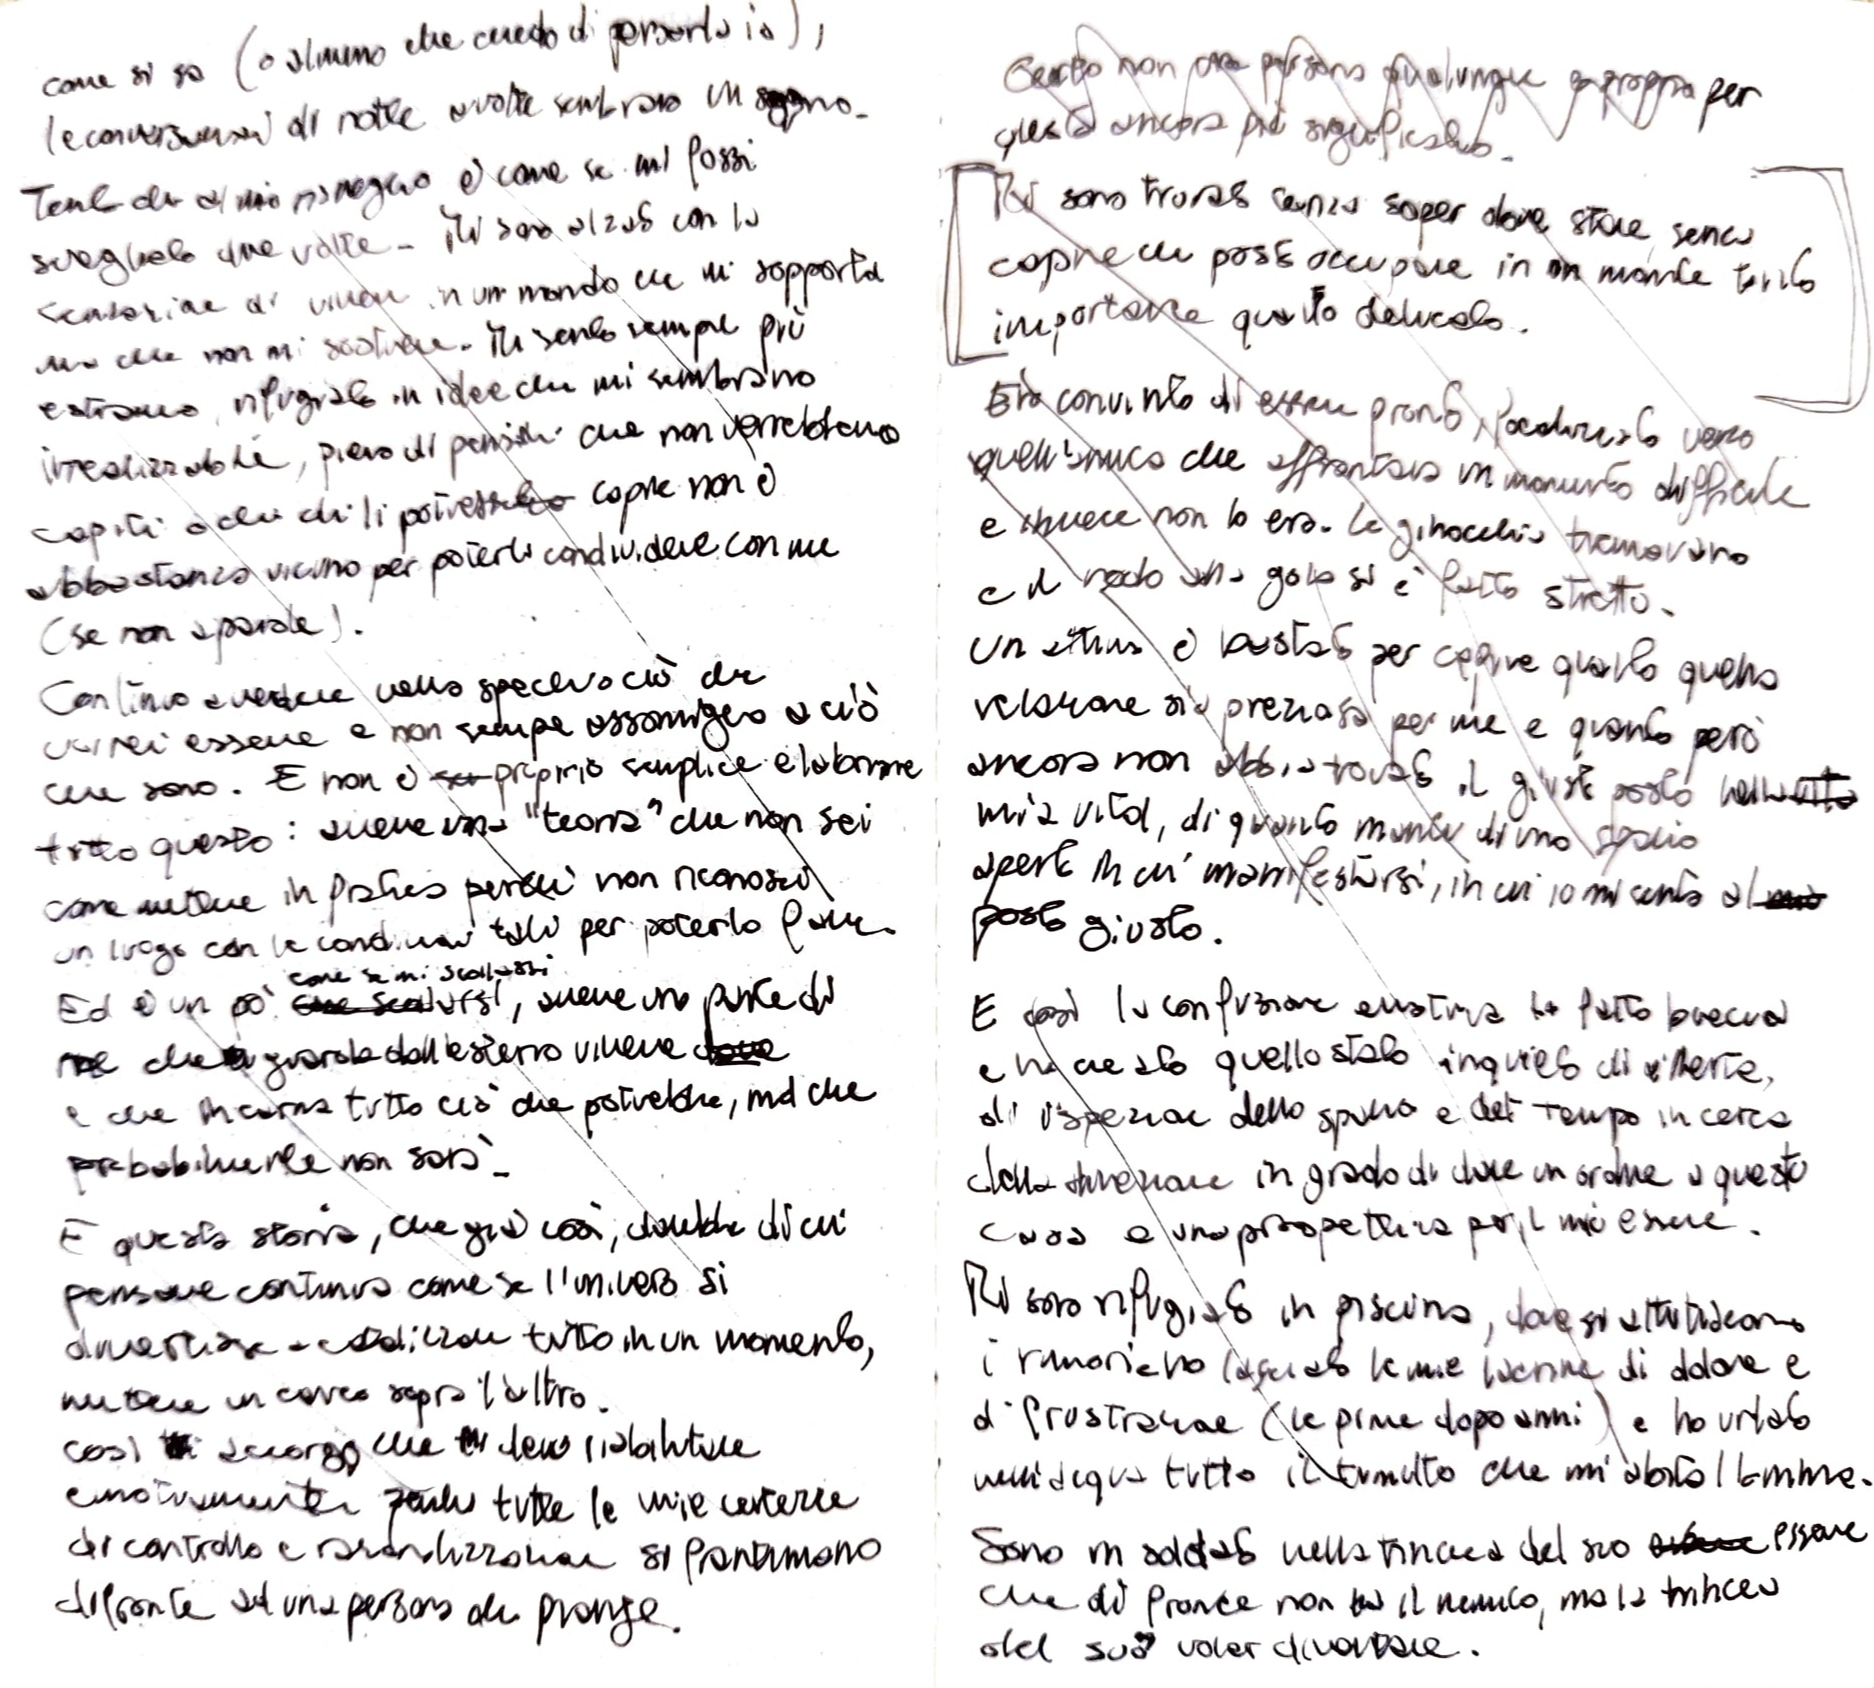 come si sa (o almeno che credo di pensarla io),
le conversazioni di notte a volte sembrano un sogno.
Tanto che al mio risveglio è come se mi fossi
svegliato due volte - Mi sono alzato con la
sensazione di vivere in un mondo che mi sopporta
ma che non mi sostiene. Mi sento sempre più
estraneo, rifugiato in idee che mi sembrano
irrealizzabili, pieno di pensieri che non verrebbero
capiti o che chi li potrebbe capire non è
abbastanza vicino per poterli condividere con me
(se non a parole).
Continuo a vedere nello specchio ciò che
vorrei essere e non sempre assomiglio a ciò
che sono. E non è proprio semplice elaborare
tutto questo: avere una "teoria" che non sai
come mettere in pratica perché non riconosci
un luogo con le condizioni tali per poterlo fare.
come se mi scollassi
Ed è un pò, avere una parte di
me che guarda dall'esterno vivere
e che incarna tutto ciò che potrebbe, ma che
probabilmente non sarà -
E questa storia, che già così, darebbe di cui
pensare continua come se l'universo si
divertisse a tutto in un momento,
mettere un carico sopra l'altro.
così mi accorgo che mi devo riabilitare
emotivamente perché tutte le mie certezze
di controllo e razionalizzazione si frantumano
difronte ad una persona che piange.
Certo non una persona qualunque e proprio per
questo ancora più significativo.
Mi sono trovato senza saper dove stare, senza
capire che posto occupare in un momento tanto
importante quanto delicato.
Ero convinto di essere pronto, catapultato verso
quell'amica che affrontava un momento difficile
e invece non lo ero. Le ginocchia tremavano
e il nodo alla gola si è fatto stretto.
Un attimo è bastato per capire quanto quella
relazione sia preziosa per me e quanto però
ancora non abbia trovato il giusto posto nella
mia vita, di quanto manchi di uno spazio
aperto in cui manifestarsi, in cui io mi senta al
posto giusto.
E così la confusione emotiva ha fatto breccia
e ha creato quello stato inquieto di allerta,
di ispezione dello spazio e del tempo in cerca
della direzione in grado di dare un ordine a questo
caos e una prospettiva per il mio essere.
Mi sono rifugiato in piscina, dove si attutiscono
i rumori e ho lasciato le mie lacrime di dolore e
di frustrazione (le prime dopo anni) e ho urlato
nell'acqua tutto il tumulto che mi abita l'anima.
Sono un soldato nella trincea del suo essere
che di fronte non ha il nemico, ma la trincea
del suo voler diventare.